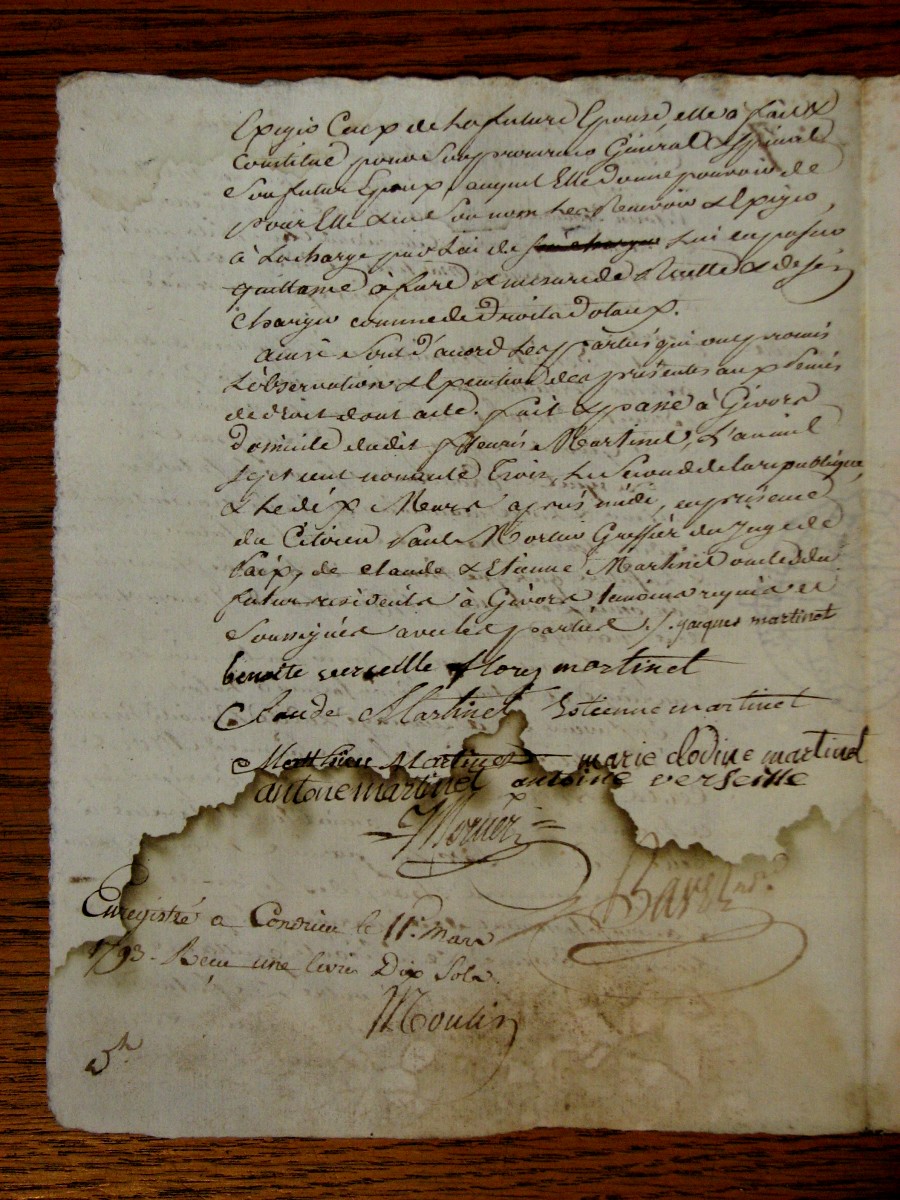 Exiger Ceux de La future Epouse, elle à fait &
Constitué pour Son procureur Général & Spécial
Son futur Epoux, auquel Elle donne pouvoir de
pour Elle & en Son nom Les Recevoir & Exiger,
à La charge par Lui de Lui en passer
quittance à fure & mesure de Recette & de S'en
Charger comme de Droits Dotaux.
ainsi Sont d'acord Les parties qui ont promis
L'observation & Exécution des présentes aux peines
de droit dont acte. fait & passé à Givors
Domicile dudit Martinet, L'an mil
Sept cent nonante Trois, Le Second de la republique,
& Le dix Mars après midi, en présence
du Citoien Paul Greffier du Juge de
Paix, de Claude & Etienne Martinet oncles du
futur residents à Givors temoins requis et
Soussignés avec les parties. /. jacques martinet
benoite verseille martinet
Claude Martinet Estienne martinet
Matthieu Martinet marie clodine martinet
antone martinet antoine verseille
Enregistré a Condrieu le 11e. Mars
1793. Reçu une livre Dix Sols.
Moulin